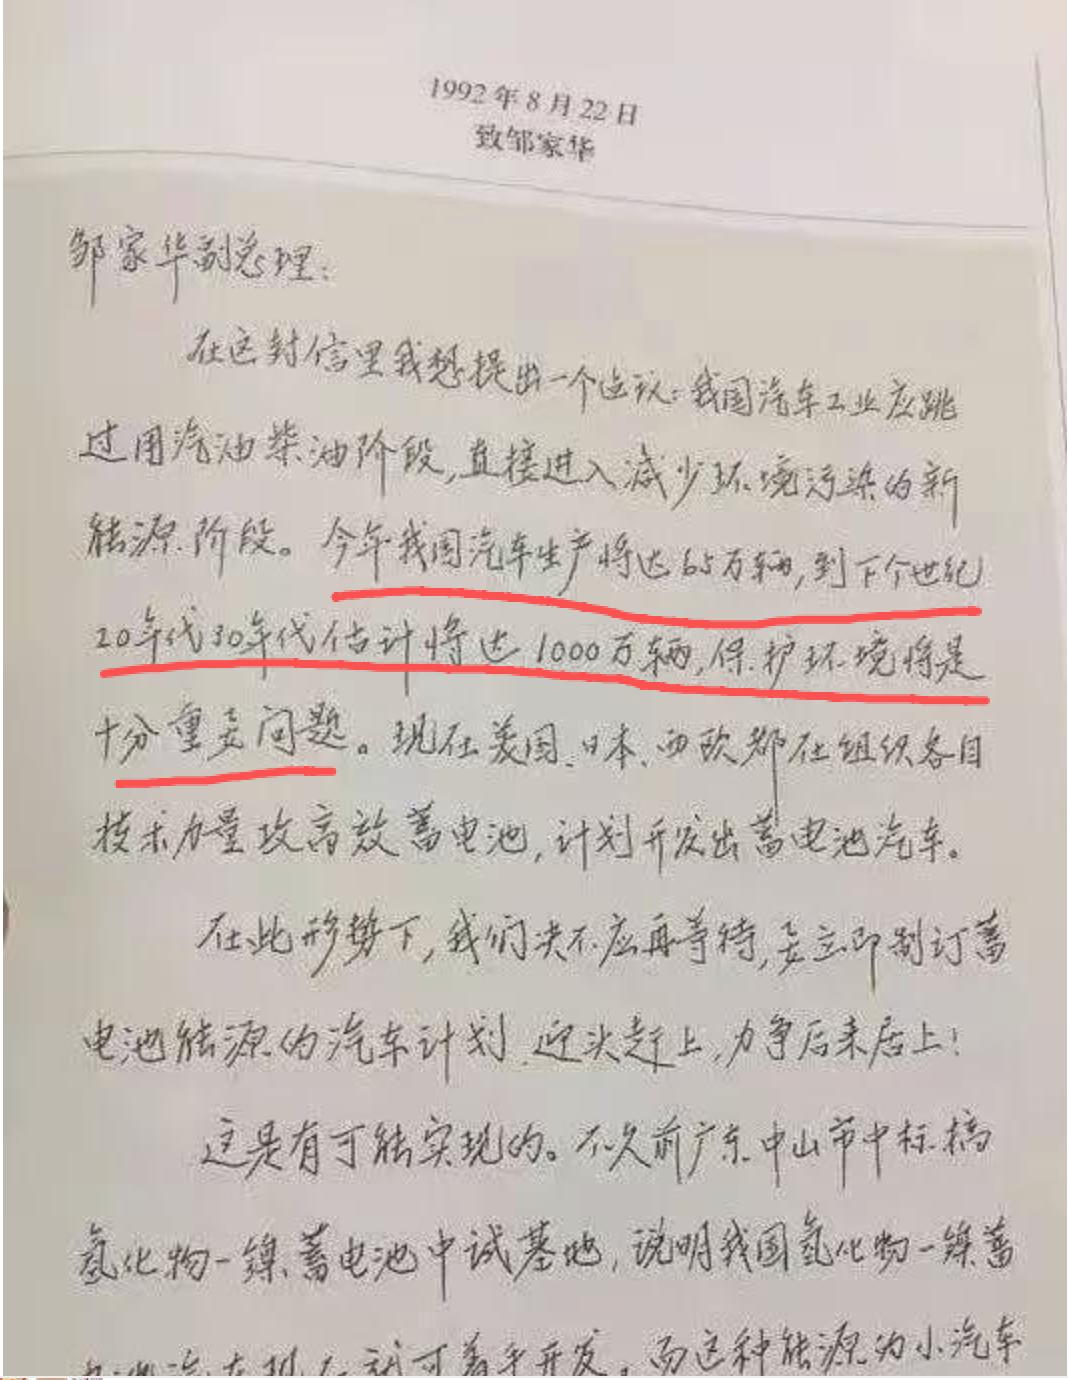 1992年8月22日
致邹家华
邹家华副总理:
在这封信里我想提出一个建议:我国汽车工业应跳
过用汽油柴油阶段,直接进入减少环境污染的新
能源阶段。今年我国汽车生产将达65万辆,到下个世纪
20年代30年代估计将达1000万辆,保护环境将是
十分重要问题。现在美国、日本、西欧都在组织各自
技术力量攻高效蓄电池,计划开发出蓄电池汽车。
在此形势下,我们决不应再等待,要立即制订蓄
电池能源的汽车计划,迎头赶上,力争后来居上!
这是有可能实现的。不久前广东中山市中标搞
氢化物-镍蓄电池中试基地,说明我国氢化物-镍蓄
就可着手开发。而这种能源的小汽车